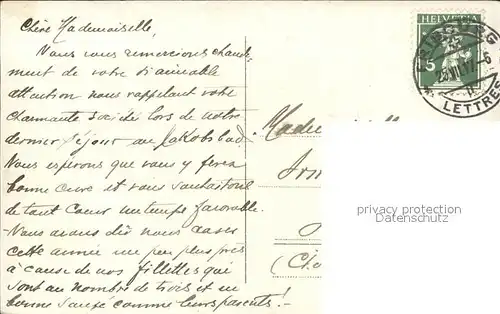 Chère Mademoiselle,
Nous vous remercions chaude
ment de votre si aimable
attention nous rappelant votre
charmante société lors de notre
dernier séjour au Jakobsbad.
Nous espérons que vous y ferez
bonne cure et vous souhaitons
de tout cœur un temps favorable.
Nous avons dû nous caser
cette année un peu plus près
à cause de nos fillettes qui
sont au nombre de trois et en
bonne santé comme leurs parents!
HELVETIA
5
FRIBOURG
25.VII.17.-6
LETTRES
privacy protection
Datenschutz